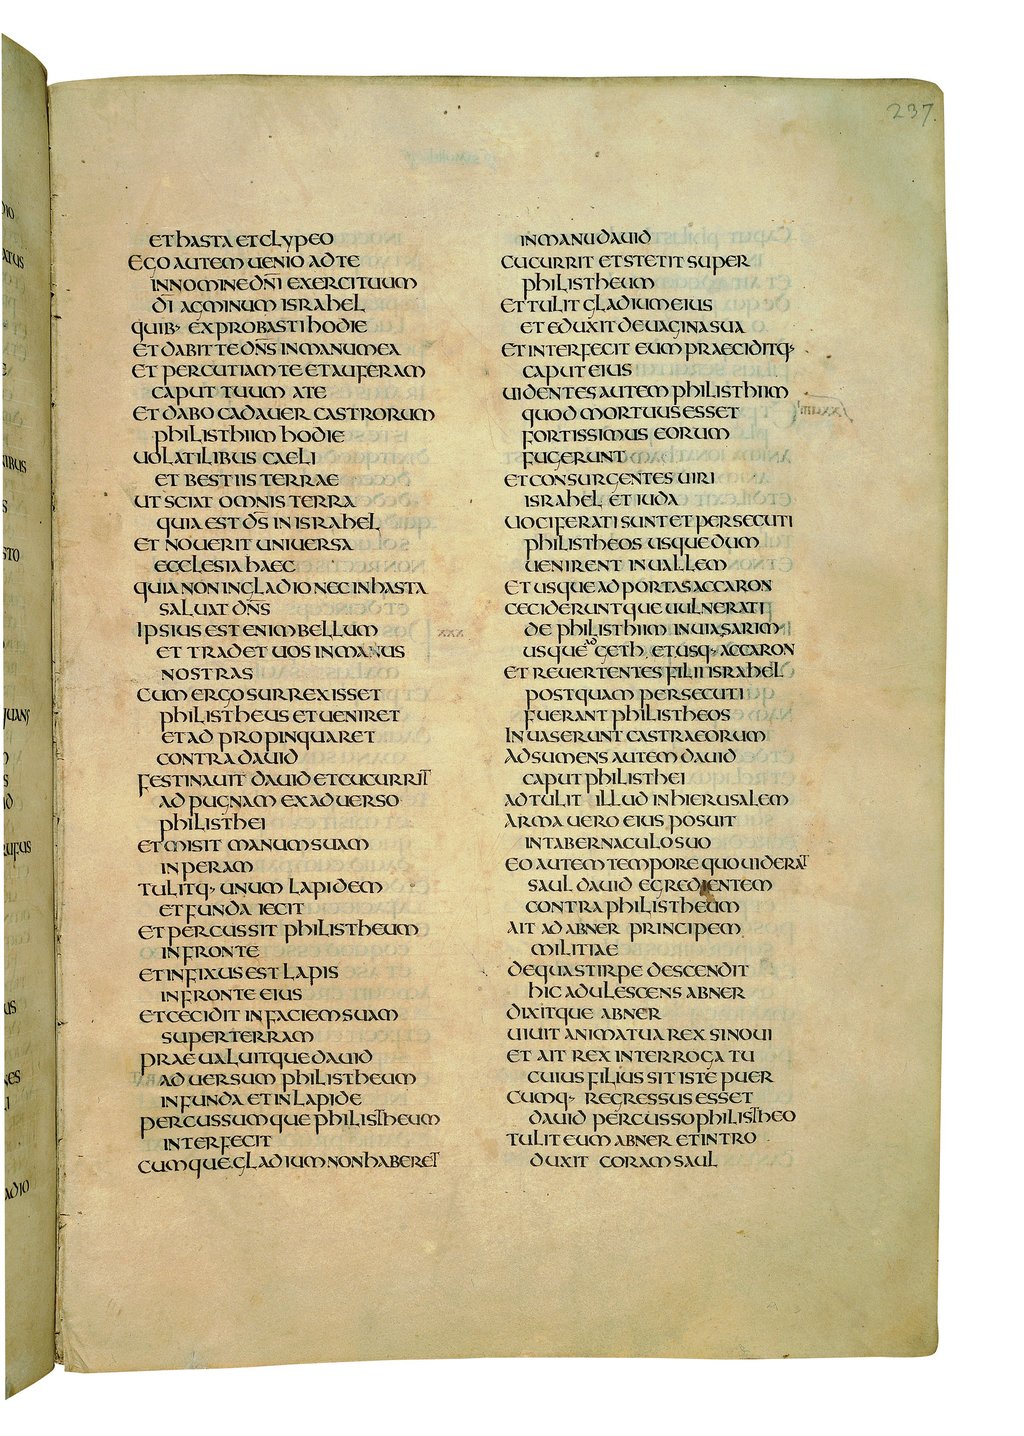 237.
ET hASTA ET CLYPEO
EGO AUTEM UENIO AD TE
IN NOMINE DN̄I EXERCITUUM
DĪ AGMINUM ISRAhEL
QUIB· EXPROBASTI hODIE
ET DABIT TE DN̄S IN MANU MEA
ET PERCUTIAM TE ET AUFERAM
CAPUT TUUM A TE
ET DABO CADAUER CASTRORUM
PhILISThIIM hODIE
UOLATILIBUS CAELI
ET BESTIIS TERRAE
UT SCIAT OMNIS TERRA
QUIA EST DS̄ IN ISRAhEL
ET NOUERIT UNIUERSA
ECCLESIA hAEC
QUIA NON IN GLADIO NEC IN hASTA
SALUAT DN̄S
IPSIUS EST ENIM BELLUM
ET TRADET UOS IN MANUS
NOSTRAS
CUM ERGO SURREXISSET
PhILISThEUS ET UENIRET
ET ADPROPINQUARET
CONTRA DAUID
FESTINAUIT DAUID ET CUCURRIT
AD PUGNAM EX ADUERSO
PhILISThEI
ET MISIT MANUM SUAM
IN PERAM
TULITQ· UNUM LAPIDEM
ET FUNDA IECIT
ET PERCUSSIT PhILISThEUM
IN FRONTE
ET INFIXUS EST LAPIS
IN FRONTE EIUS
ET CECIDIT IN FACIEM SUAM
SUPER TERRAM
PRAEUALUITQUE DAUID
ADUERSUM PhILISThEUM
IN FUNDA ET IN LAPIDE
PERCUSSUMQUE PhILISThEUM
INTERFECIT
CUMQUE GLADIUM NON hABERET
IN MANU DAUID
CUCURRIT ET STETIT SUPER
PhILISThEUM
ET TULIT GLADIUM EIUS
ET EDUXIT DE UAGINA SUA
ET INTERFECIT EUM PRAECIDITQ·
CAPUT EIUS
UIDENTES AUTEM PhILISThIIM
QUOD MORTUUS ESSET
FORTISSIMUS EORUM
FUGERUNT
ET CONSURGENTES UIRI
ISRAhEL ET IUDA
UOCIFERATI SUNT ET PERSECUTI
PhILISThEOS USQUE DUM
UENIRENT IN UALLEM
ET USQUE AD PORTAS ACCARON
CECIDERUNTQUE UULNERATI
DE PhILISThIIM IN UIA SARIM
USQUE AD GETh ET USQ· ACCARON
ET REUERTENTES FILII ISRAhEL
POSTQUAM PERSECUTI
FUERANT PhILISThEOS
INUASERUNT CASTRA EORUM
ADSUMENS AUTEM DAUID
CAPUT PhILISThEI
ADTULIT ILLUD IN hIERUSALEM
ARMA UERO EIUS POSUIT
IN TABERNACULO SUO
EO AUTEM TEMPORE QUO UIDERAT
SAUL DAUID EGREDIENTEM
CONTRA PhILISThEUM
AIT AD ABNER PRINCIPEM
MILITIAE
DE QUA STIRPE DESCENDIT
hIC ADULESCENS ABNER
DIXITQUE ABNER
UIUIT ANIMA TUA REX SI NOUI
ET AIT REX INTERROGA TU
CUIUS FILIUS SIT ISTE PUER
CUMQ· REGRESSUS ESSET
DAUID PERCUSSO PhILISThEO
TULIT EUM ABNER ET INTRO
DUXIT CORAM SAUL